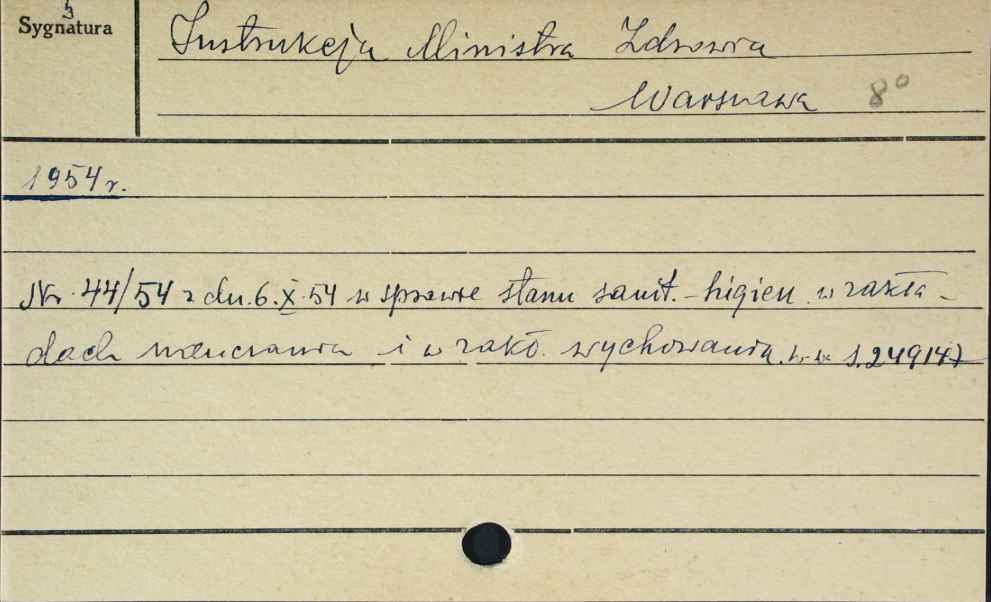 Sygnatura
Instrukcja Ministra Zdrowia
Warszawa 8°
1954 r.
Nr. 44/54 z dn. 6.X.54 w sprawie stanu sanit. - higien. w zakła-
dach nauczania i w zakł. wychowania. S. 249147